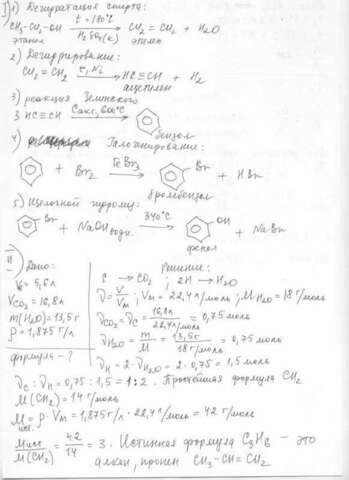 I) 1) Дегидратация спирта:
CH₃-CH₂-OH t = 180°C H₂SO₄(к) → CH₂ = CH₂ + H₂O
этанол этилен
2) Дегидрирование:
CH₂ = CH₂ t°, Ni → HC ≡ CH + H₂
ацетилен
3) реакция Зелинского
3 HC ≡ CH Cакт, 600°C →
бензол
4) Галогенирование:
+ Br₂ FeBr₃ → Br + HBr
бромбензол
5) Щелочной гидролиз:
Br + NaOH водн. 340°C → OH + NaBr
фенол
II Дано:
V = 5,6 л
VCO₂ = 16,8 л
m(H₂O) = 13,5 г
ρ = 1,875 г/л
формула - ?
Решение:
C → CO₂ ; 2H → H₂O
ν = V/Vм ; Vм = 22,4 л/моль ; MH₂O = 18 г/моль
νCO₂ = νC = 16,8 л / 22,4 л/моль = 0,75 моль
νH₂O = m/M = 13,5 г / 18 г/моль = 0,75 моль
νH = 2·νH₂O = 2·0,75 = 1,5 моль
νC : νH = 0,75 : 1,5 = 1:2. Простейшая формула CH₂
M(CH₂) = 14 г/моль
Mист. = ρ·Vм = 1,875 г/л · 22,4 л/моль = 42 г/моль
Mист/M(CH₂) = 42/14 = 3. Истинная формула C₃H₆ – это
алкен, пропен CH₃-CH=CH₂